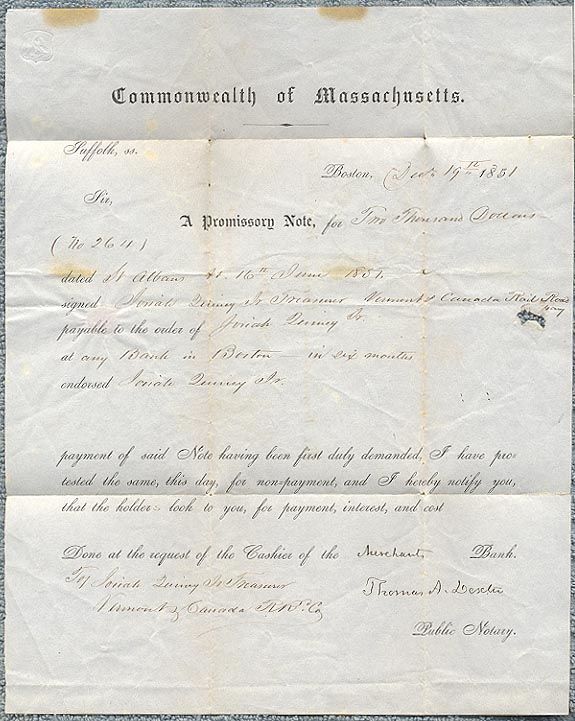 Commonwealth of Massachusetts.
Suffolk, ss.
Boston, Decr 19th 1851
Sir,
A Promissory Note, for Two Thousand Dollars
(No 264)
dated St Albans 16th June 1851.
signed Josiah Quincy Jr Treasurer Vermont & Canada Rail Road
payable to the order of Josiah Quincy Jr.
at any Bank in Boston in six months
endorsed Josiah Quincy Jr.
payment of said Note having been first duly demanded, I have pro-
tested the same, this day, for non-payment, and I hereby notify you,
that the holder look to you, for payment, interest, and cost
Done at the request of the Cashier of the Merchants Bank.
To Josiah Quincy Jr Treasurer
Thomas A. Dexter
Vermont & Canada R.R. Co
Public Notary.